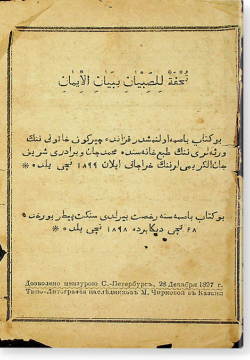 تُحْفَةٌ لِلصِّبْيَانِ بِبَيَانِ الْإِيمَانِ
بو كتاب باصمه اولنمشدر قزانده چيركوف خاتوننى ننك
ورثه لرى ننك طبع خانه سنده محمدجان وبرادرى شريف
جان الكريمى لرننك خراجاتى ايلان ١٨٩٩ نچى يلده *
بو كتاب باصمه سنه رخصت بيرلدى سنكت پيطربورغده *
٢٨ نچى ديكابرده ١٨٩٨ نچى يلده *
Дозволено цензурою С.-Петербургъ, 28 Декабря 1897 г.
Типо-Литографія наслѣдниковъ М. Чирковой въ Казани